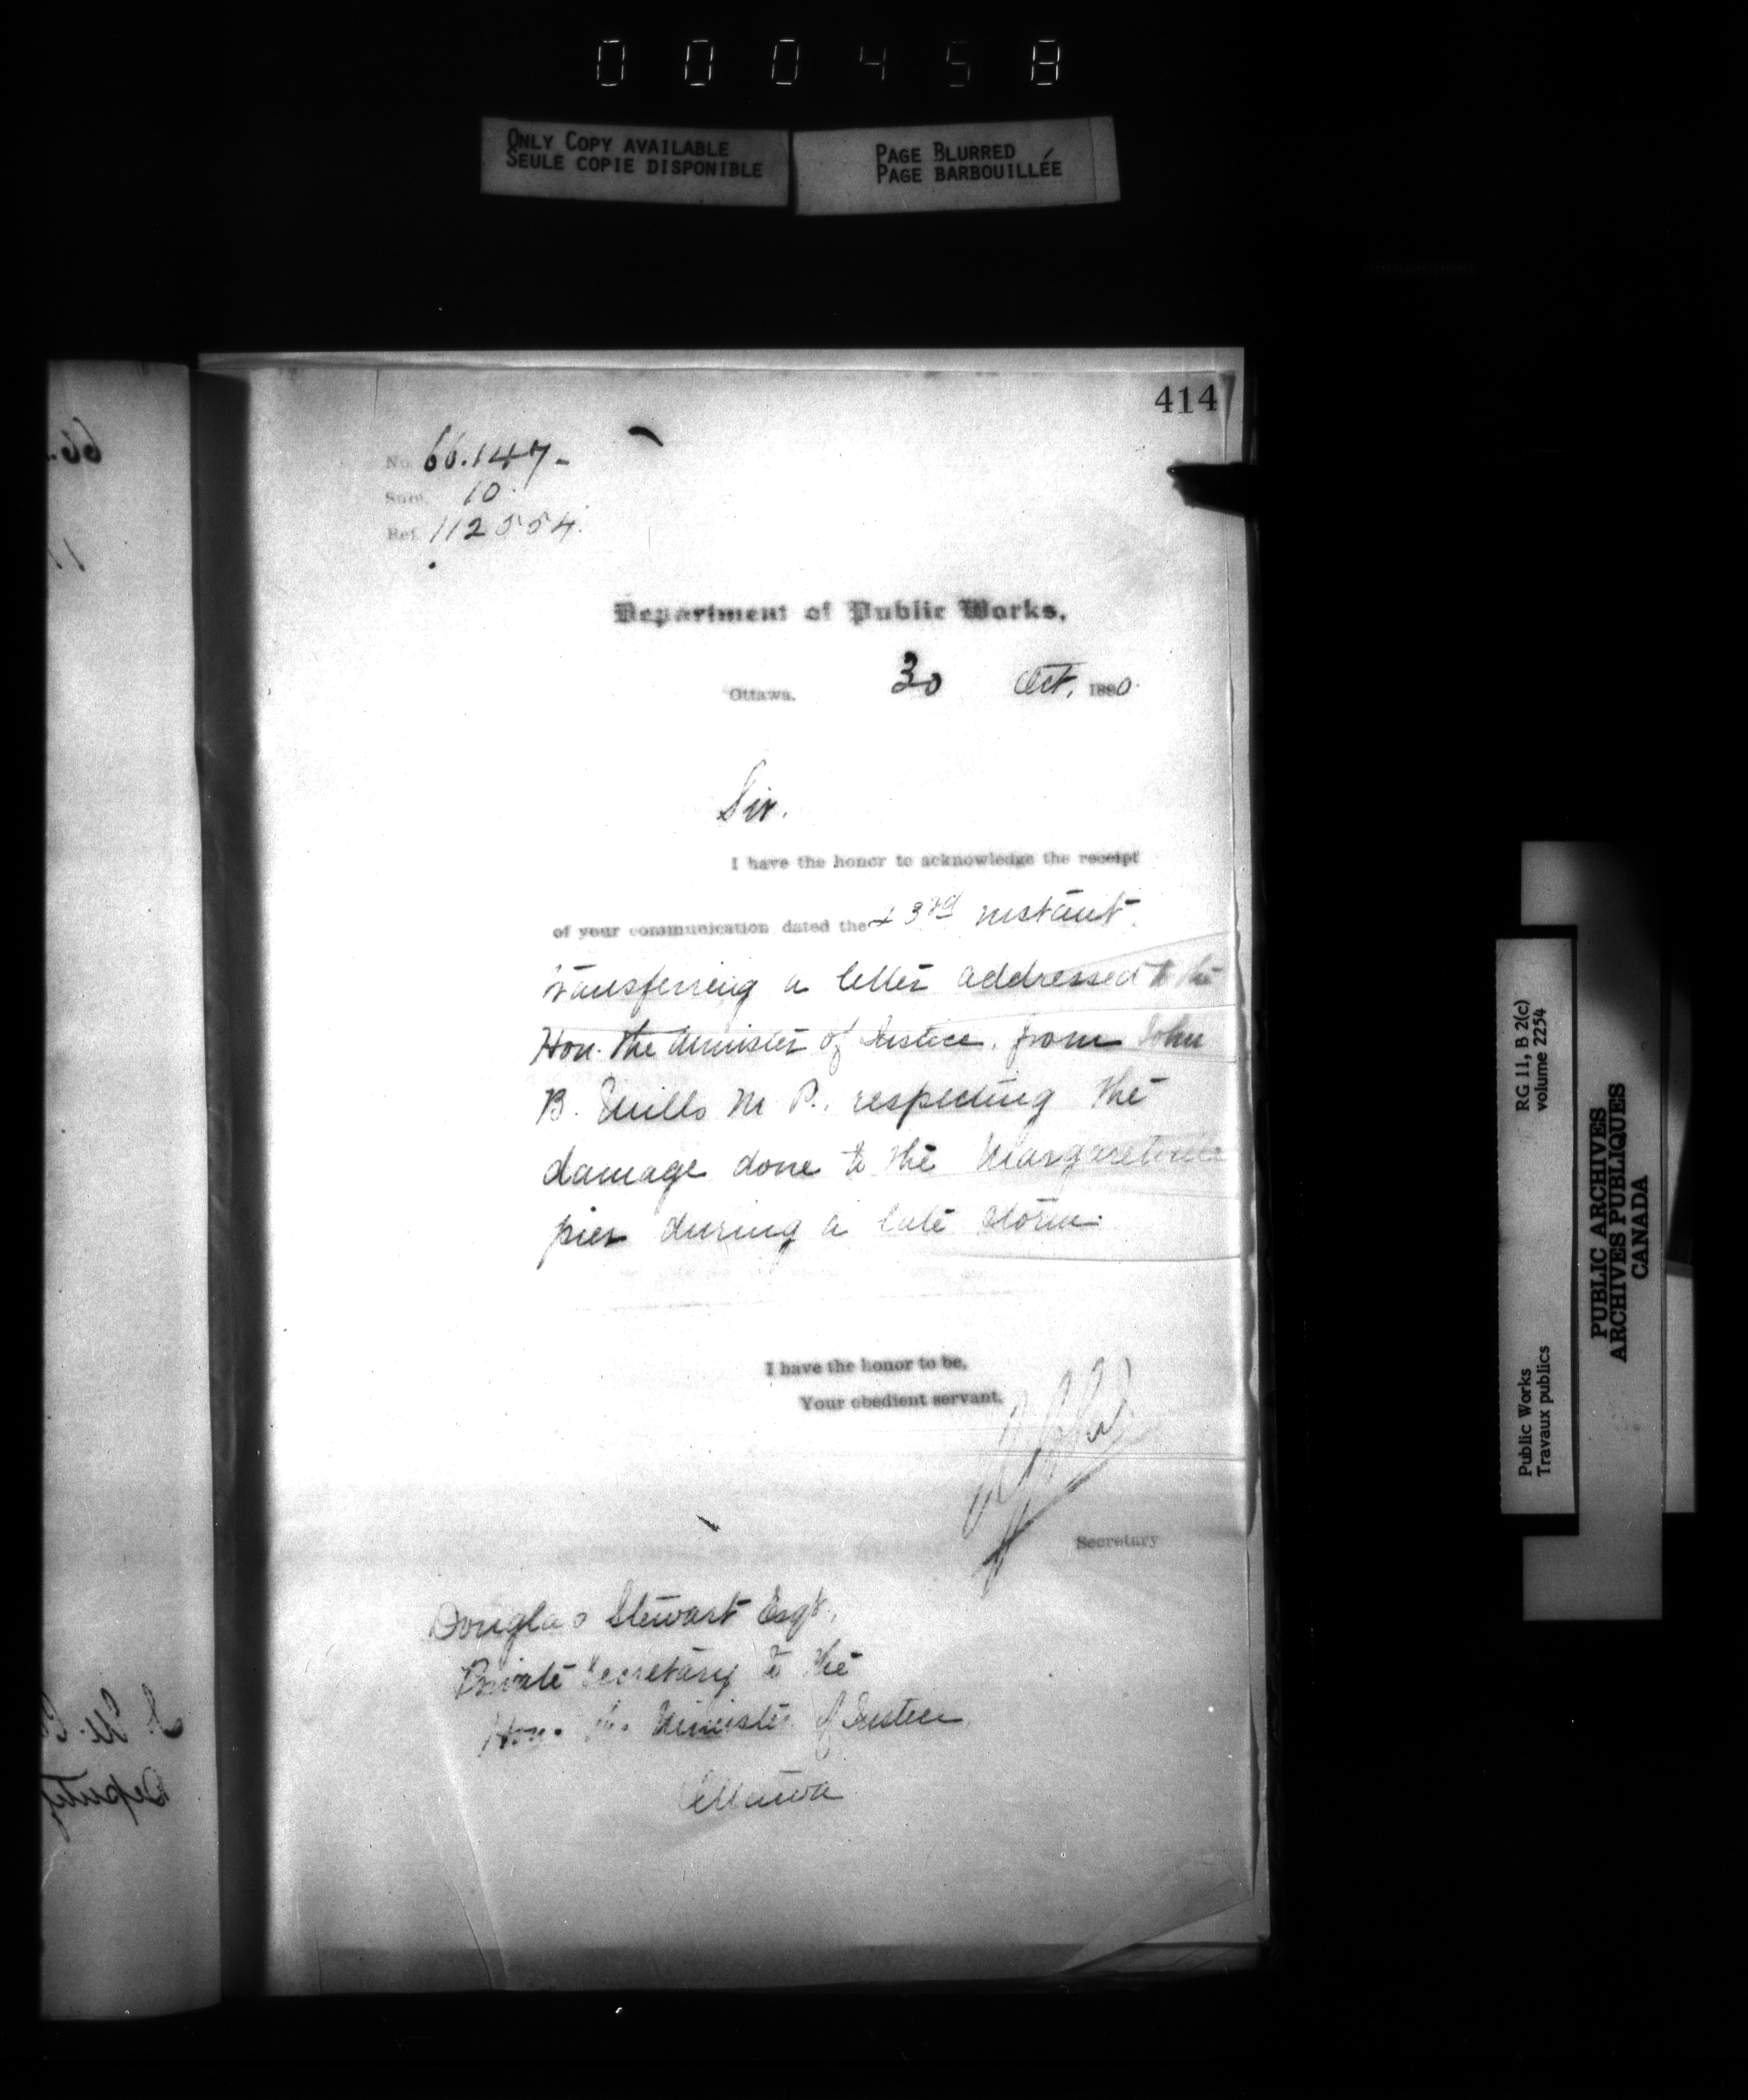 000458
ONLY COPY AVAILABLE
SEULE COPIE DISPONIBLE
PAGE BLURRED
PAGE BARBOUILLÉE
414
No. 66.147-
10.
Ref. 112554.
Department of Public Works.
Ottawa. 30 Oct. 1890.
Sir.
I have the honor to acknowledge the receipt
of your communication dated the 23rd instant.
transferring a letter addressed to the
Hon. the Minister of Justice, from John
B. Mills M P., respecting the
damage done to the Margaretville
pier during a late storm.
I have the honor to be,
Your obedient servant,
Secretary
Douglas Stewart Esqr.,
Private Secretary to the
Hon. the Minister of Justice
Ottawa
RG 11, B 2(c)
volume 2254
Public Works
Travaux publics
PUBLIC ARCHIVES
ARCHIVES PUBLIQUES
CANADA